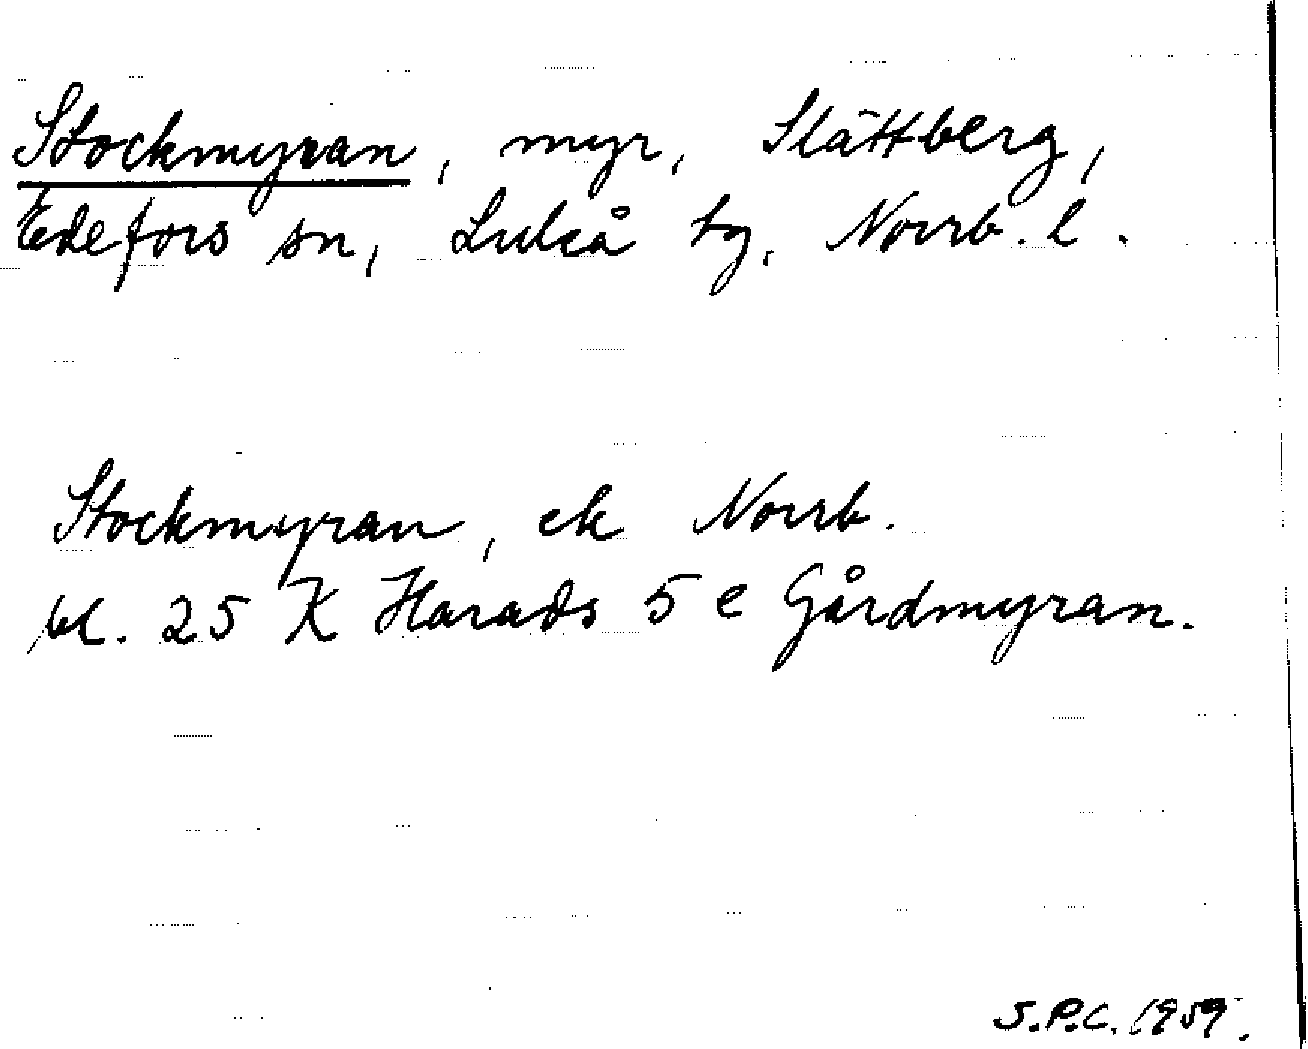 Stockmyran, myr, Slättberg,
Edefors sn, Luleå tg, Norrb. l.
Stockmyran, ek Norrb.
bl. 25 K Harads 5 e Gårdmyran.
S.P.C. 1959.